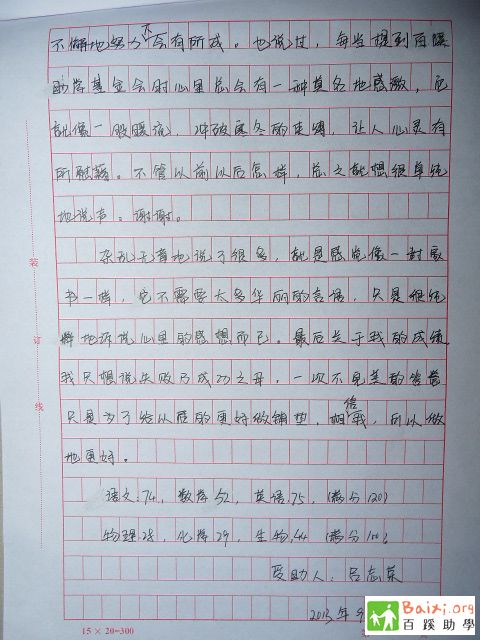 不懈地努力不会有所成。也说过，每当提到百蹊
助学基金会时心里总会有一种莫名地感激，它
就像一股暖流，冲破寒冬的束缚，让人心灵有
所慰藉。不管以前以后怎样，总之就想很单纯
地说声。谢谢。
杂乱无章地说了很多，就是感觉像一封家
书一样，它不需要太多华丽的言语，只是很纯
粹地诉说心里的感想而已。最后关于我的成绩
我只想说失败乃成功之母，一次不完美的答卷
只是为了给以后的更好做铺垫，相信我，所以做
地更好。
语文:74，数学52，英语:75，(满分120)
物理:28，化学29，生物:44 (满分100)
受助人：吕志荣
2013年9
装
订
线
15×20=300
Baixi.org
百蹊助學